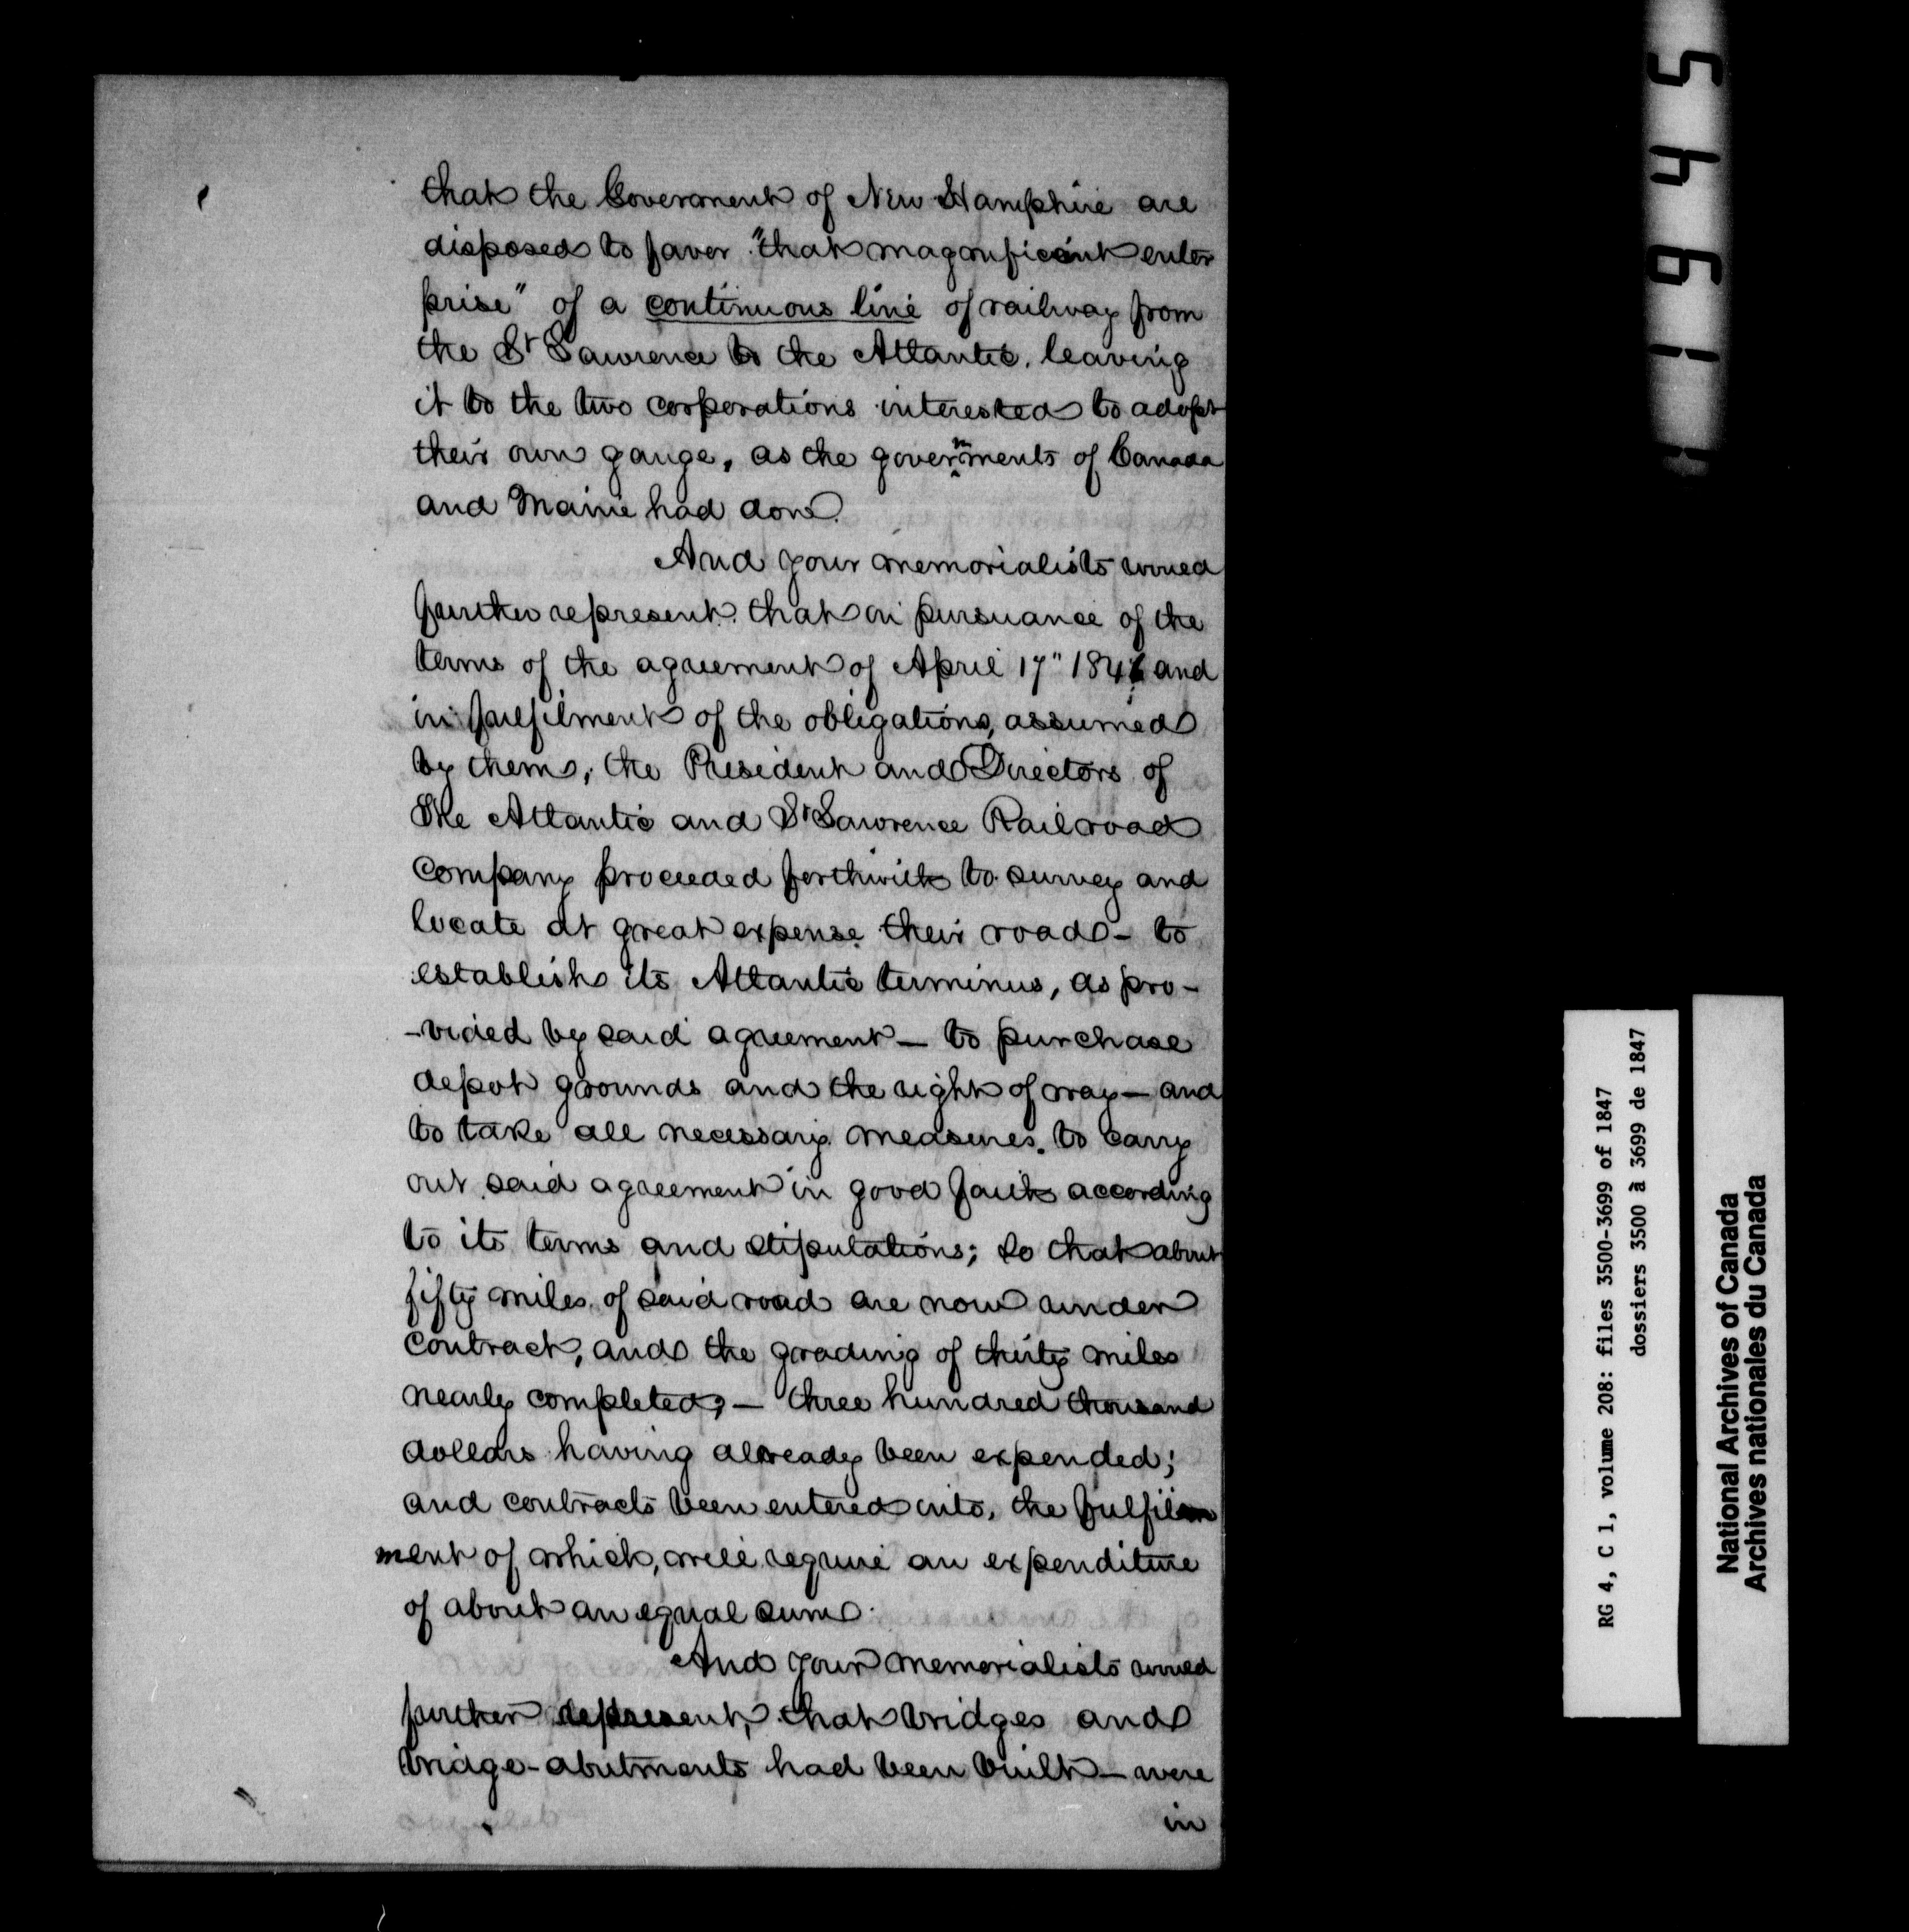 that the Government of New Hampshire are
disposed to favor "that magnificent enter
prise" of a continuous line of railway from
the St Lawrence to the Atlantic. leaving
it to the two corporations interested to adopt
their own gauge, as the governments of Canada
and Maine had done.
And your memorialists would
further represent. that in pursuance of the
terms of the agreement of April 17" 1846 and
in fulfilment of the obligations, assumed
by them, the President and Directors of
the Atlantic and St Lawrence Railroad
Company proceeded forthwith to survey and
locate at great expense their road - to
establish its Atlantic terminus, as pro-
-vided by said agreement - to purchase
depot grounds and the right of way - and
to take all necessary measures. to carry
out said agreement in good faith according
to its terms and stipulations; so that about
fifty miles of said road are now under
contract, and the grading of thirty miles
nearly completed; - three hundred thousand
dollars having already been expended;
and contracts been entered into, the fulfil
ment of which, will require an expenditure
of about an equal sum.
And your memorialists would
further represent, that bridges and
bridge-abutments had been built - were
in
19645
RG 4, C 1, volume 208: files 3500-3699 of 1847
dossiers 3500 à 3699 de 1847
National Archives of Canada
Archives nationales du Canada